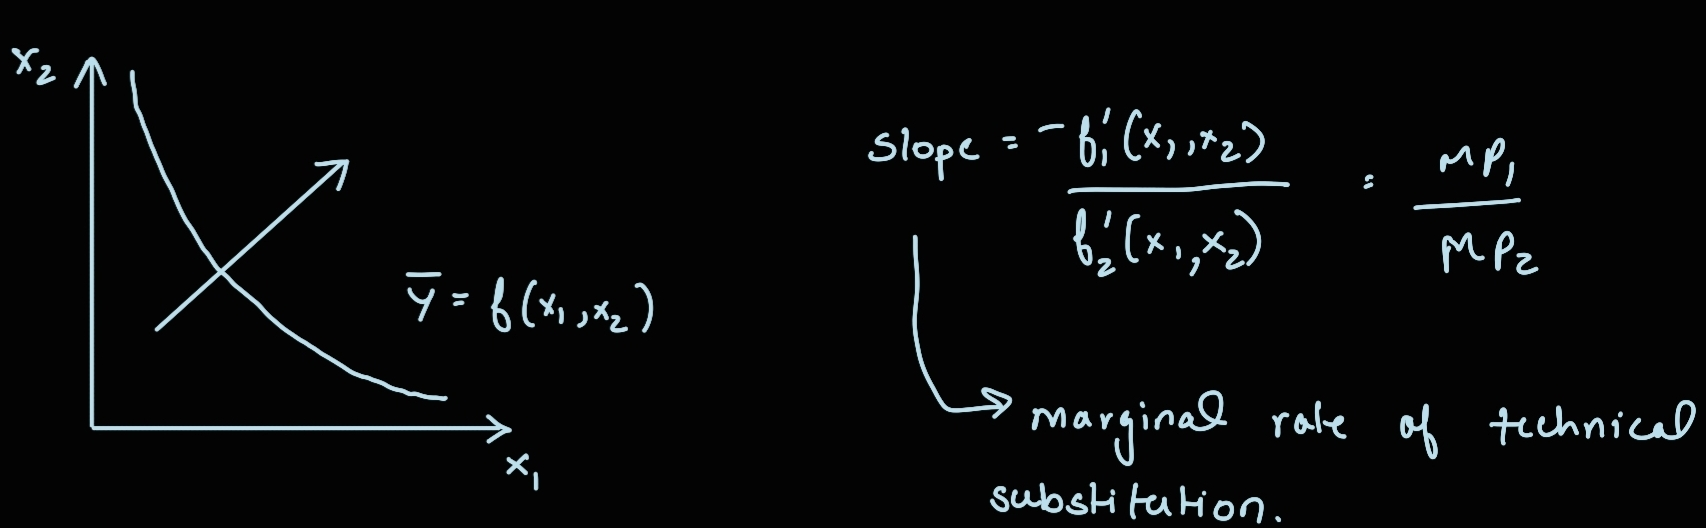 x₂
ȳ = f(x₁, x₂)
x₁
slope = -f₁'(x₁, x₂) / f₂'(x₁, x₂) = MP₁ / MP₂
marginal rate of technical
substitution.